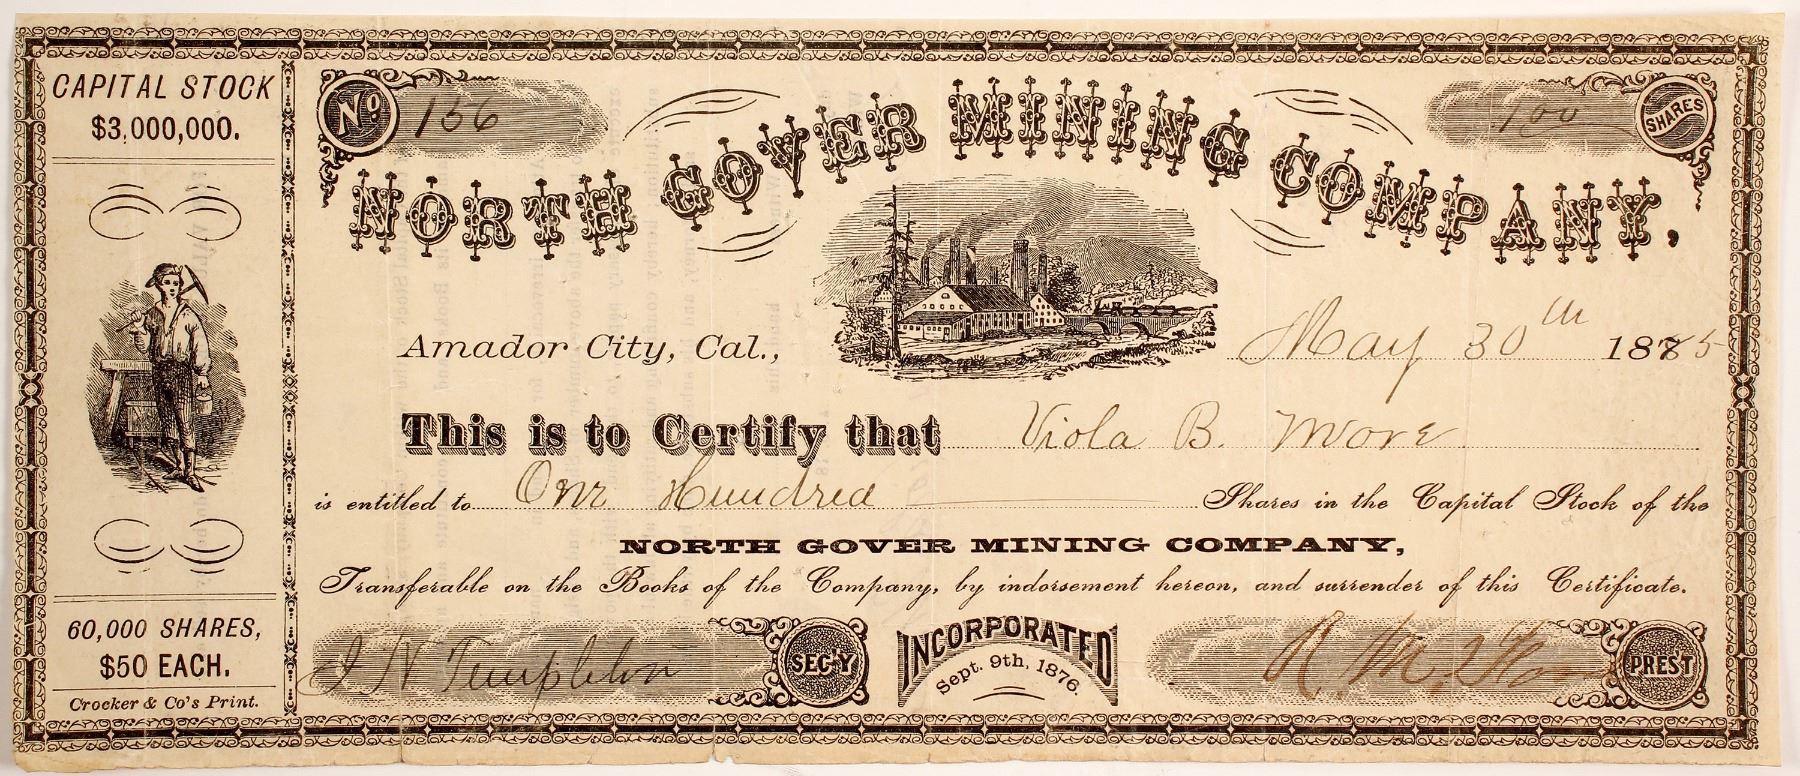 CAPITAL STOCK
$3,000,000.
60,000 SHARES,
$50 EACH.
Crocker & Co's Print.
No 156
100 SHARES
NORTH GOVER MINING COMPANY,
Amador City, Cal., May 30th 1885
This is to Certify that Viola B. More
is entitled to One Hundred Shares in the Capital Stock of the
NORTH GOVER MINING COMPANY,
Transferable on the Books of the Company, by indorsement hereon, and surrender of this Certificate.
J H Templeton SEC'Y
INCORPORATED
Sept. 9th, 1876.
R. M. PRES'T